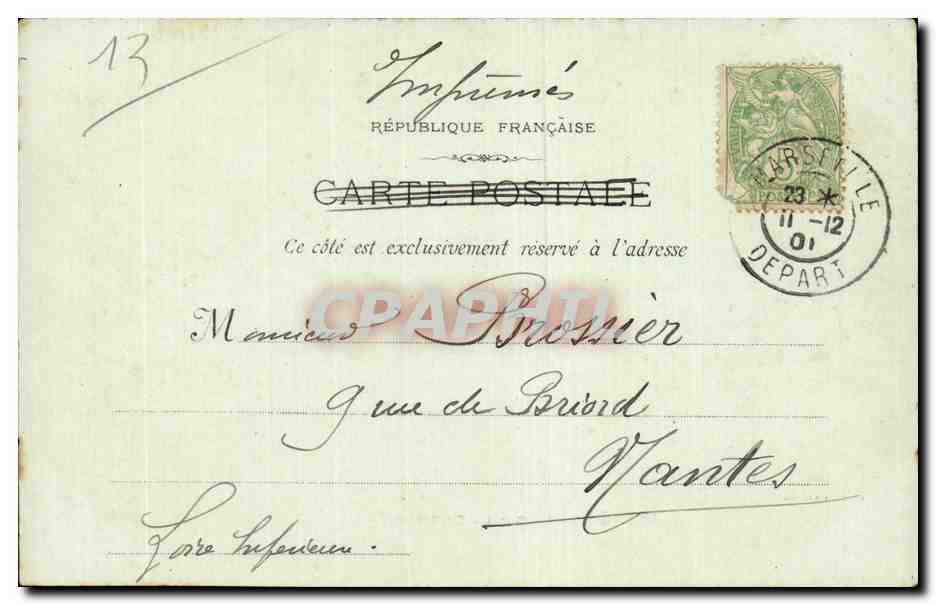 13
Imprimés
RÉPUBLIQUE FRANÇAISE
CARTE POSTALE
MARSEILLE
23 *
11 -12
01
DEPART
Ce côté est exclusivement réservé à l'adresse
CPAPHIL
Monsieur Prossier
9 rue de Briord
Nantes
Loire Inferieure.